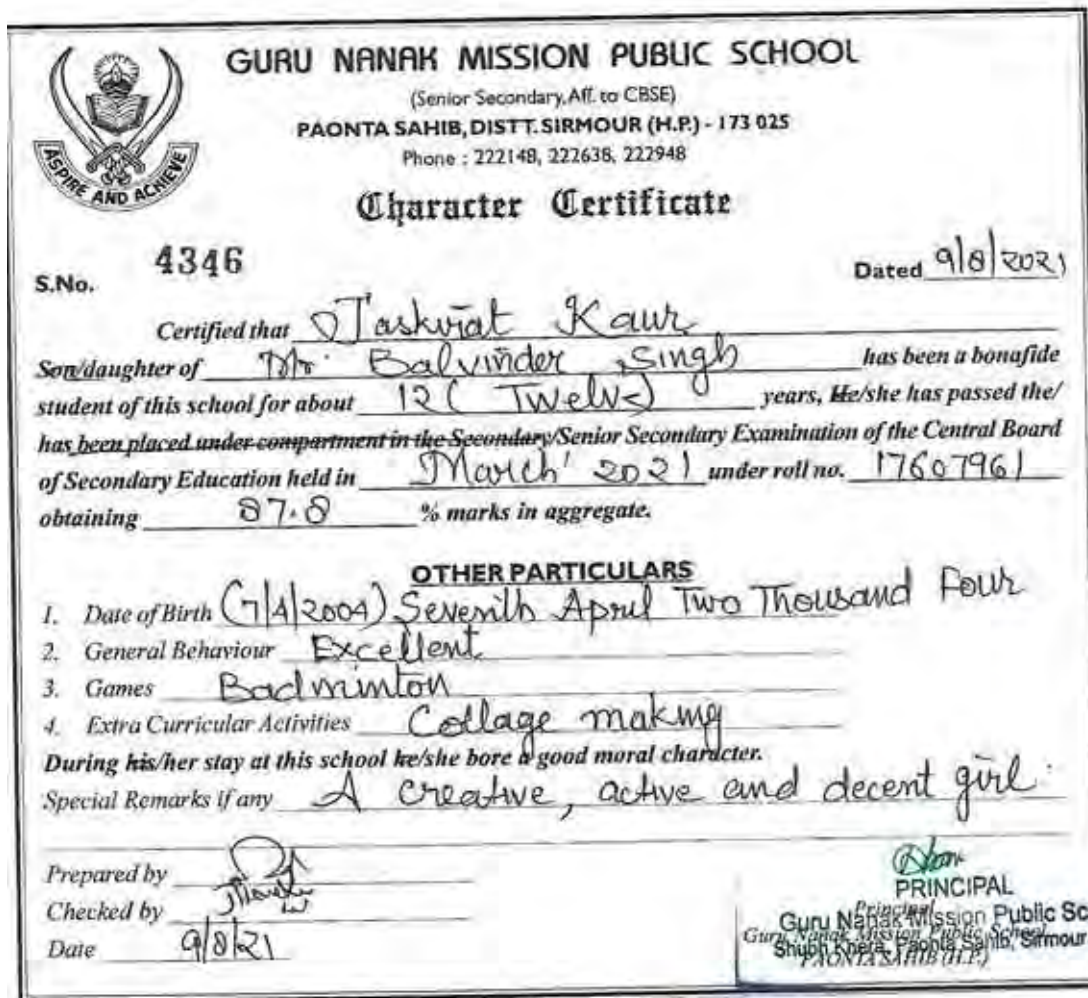 GURU NANAK MISSION PUBLIC SCHOOL
(Senior Secondary, Aff. to CBSE)
PAONTA SAHIB, DISTT. SIRMOUR (H.P.) - 173 025
Phone : 222148, 222638, 222948
ASPIRE AND ACHIEVE
Character Certificate
S.No. 4346 Dated 9/8/2021
Certified that Jaskirat Kaur
Son/daughter of Mr. Balvinder Singh has been a bonafide
student of this school for about 12 (Twelve) years, He/she has passed the/
has been placed under compartment in the Secondary/Senior Secondary Examination of the Central Board
of Secondary Education held in March' 2021 under roll no. 17607961
obtaining 87.8 % marks in aggregate.
OTHER PARTICULARS
1. Date of Birth (7/4/2004) Seventh April Two Thousand Four
2. General Behaviour Excellent
3. Games Badminton
4. Extra Curricular Activities Collage making
During his/her stay at this school he/she bore a good moral character.
Special Remarks if any A creative, active and decent girl.
Prepared by
Checked by
Date 9/8/21
PRINCIPAL
Principal
Guru Nanak Mission Public Sc
Guru Nanak Mission Public School
Shubh Khera, Paonta Sahib, Sirmour
PAONTA SAHIB (H.P.)